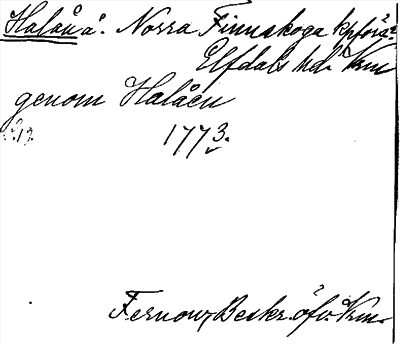 Halån å. Norra Finnskoga kpförs.
Elfdals hd. Vrm
genom Halåen
1773.
Fernow, Beskr. öfv. Vrm.